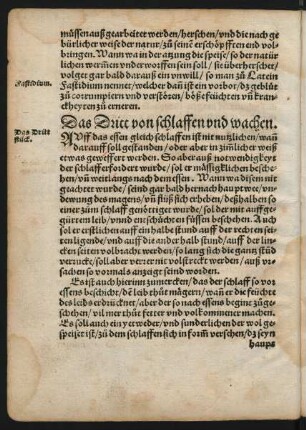 müssen auß gearbeitet werden / herschen / vnd die nach ge
bürlicher weise der natur / zů seinẽ erschöpffren end vol-
bringen. Wann wa in der atzung die speise / so der natür
lichen wermẽn vnder worffen sein soll / sie überherschet /
volget gar bald darauß ein vnwill / so man zů Latein
Fastidium.
Fastidium nennet / welcher dañ ist ein vorbot / dz geblüt
zů corrumpiern vnd verstören / böße feüchten vñ kran-
ckheyten zů erneren.
Das Dritt von schlaffen vnd wachen.
Das Dritt
stück.
AVff das essen gleich schlaffen ist nit nutzlichen / wañ
darauff soll gestanden / oder aber in zimlicher weiß
etwas geweffert werden. So aber auß notwendigkeyt
der schlaff erfordert wurde / sol er mässigklichen besche-
hen / vñ weit langs nach dem essen. Wann wa dessen nit
geachtet wurde / seind gar bald hernach haupt wee / vn-
dewung des magens / vñ flüß sich erheben / deßhalben so
einer zům schlaff genöttiget wurde / sol der mit auff ge-
gürtem leib / vnnd entschüchten füssen beschehen. Auch
sol er erstlichen auff ein halbe stund auff der rechten sei-
ten ligende / vnd auff die ander halb stund / auff der lin-
cken seiten volbracht werden / so lang sich die gantz stüd
verrucke / soll aber verrer nit volstreckt werden / auß vr-
sachen so vormals anzeigt seind worden.
Es ist auch hierinn zůmercken / das der schlaff so vor
essens beschicht / dẽ leib thůt mägern / wañ er die feüchte
des leibs erdrücknet / aber der so nach essens beginn züge-
schehen / vil mer thůt fetter vnd volkommener machen.
Es soll auch ein yetweder / vnd sunderlichen der wol ge-
speiszt ist / zů dem schlaff en sich in form versehen / dz seyn
haupt